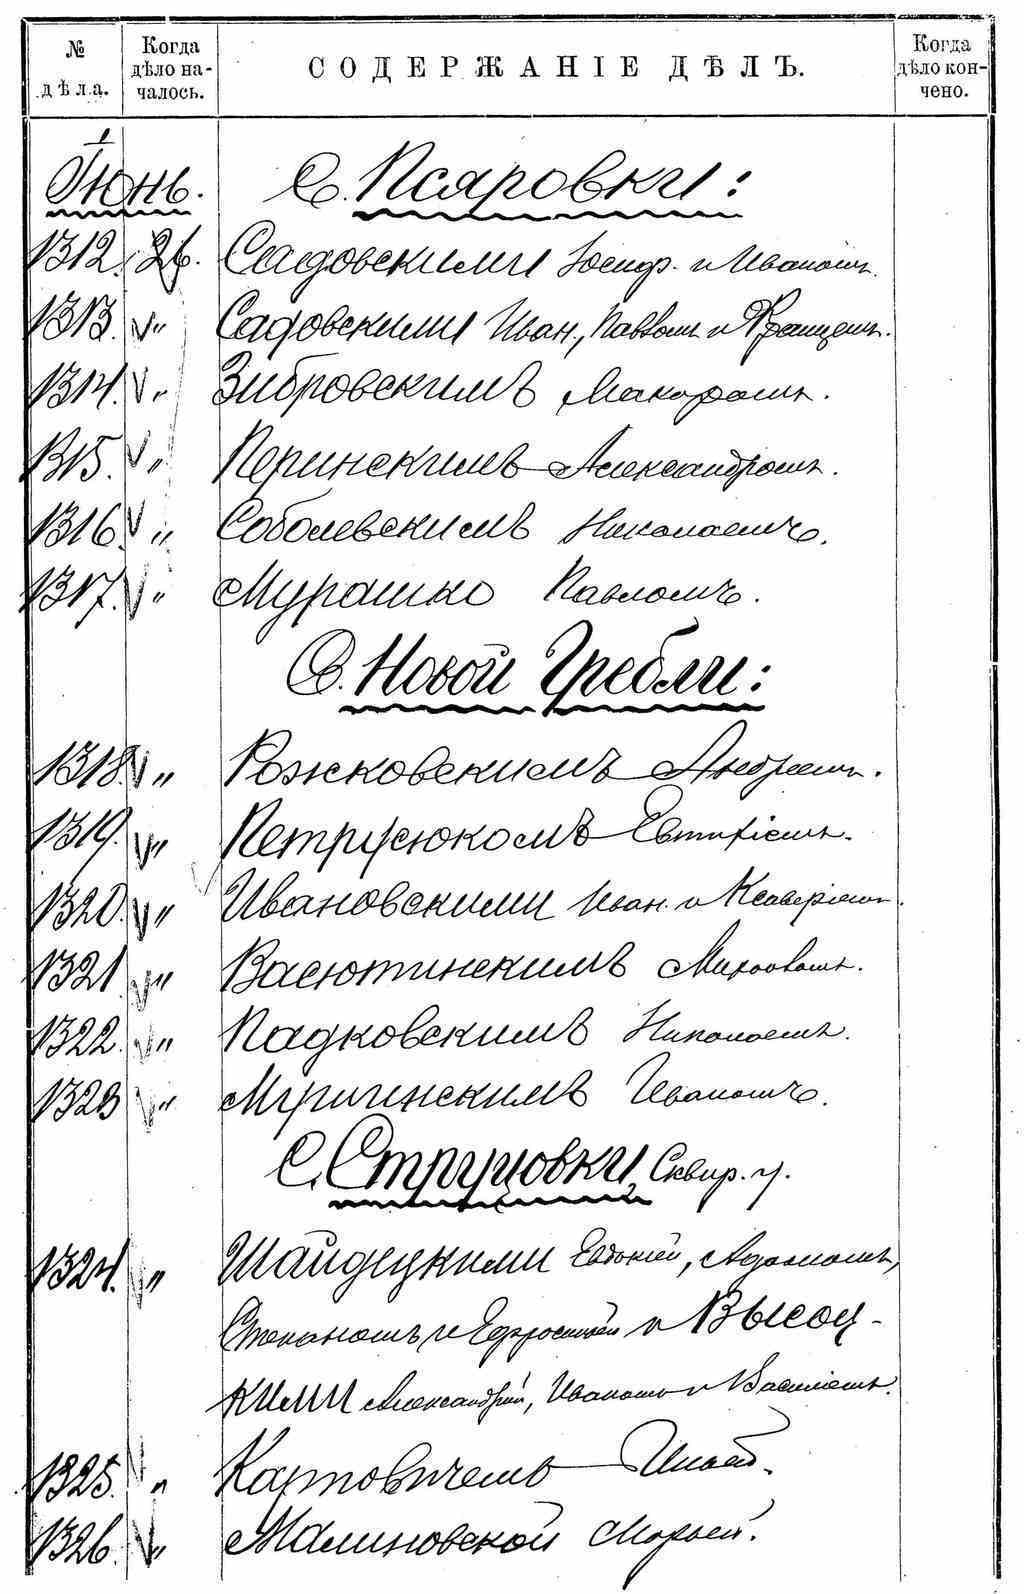 № дѣла.
Когда дѣло началось.
СОДЕРЖАНІЕ ДѢЛЪ.
Когда дѣло кончено.
Іюнь. С. Псяровки:
1312. 26. Садовскими Іосиф. и Иваномъ.
1313. " Садовскими Иван., Павломъ и Францемъ.
1314. " Зибровскимъ Макаромъ.
1315. " Перинскимъ Александромъ.
1316. " Соболевскимъ Николаемъ.
1317. " Мурашко Павломъ.
С. Новой Гребли:
1318. " Рожковскимъ Андреемъ.
1319. " Петрусюкомъ Евтихіемъ.
1320. " Ивановскими Иван. и Ксаверіемъ.
1321 " Васютинскимъ Михаломъ.
1322. " Падковскимъ Николаемъ.
1323 " Мричинскимъ Иваномъ.
С. Струцовки, Сквир. у.
1324. " Шайдецкими Евдокіей, Адамомъ,
Степаномъ и Ефросиніей и Высоц-
кими Александрой, Иваномъ и Василіемъ.
1325. " Карповичемъ Ильей.
1326. " Малиновской Марьей.